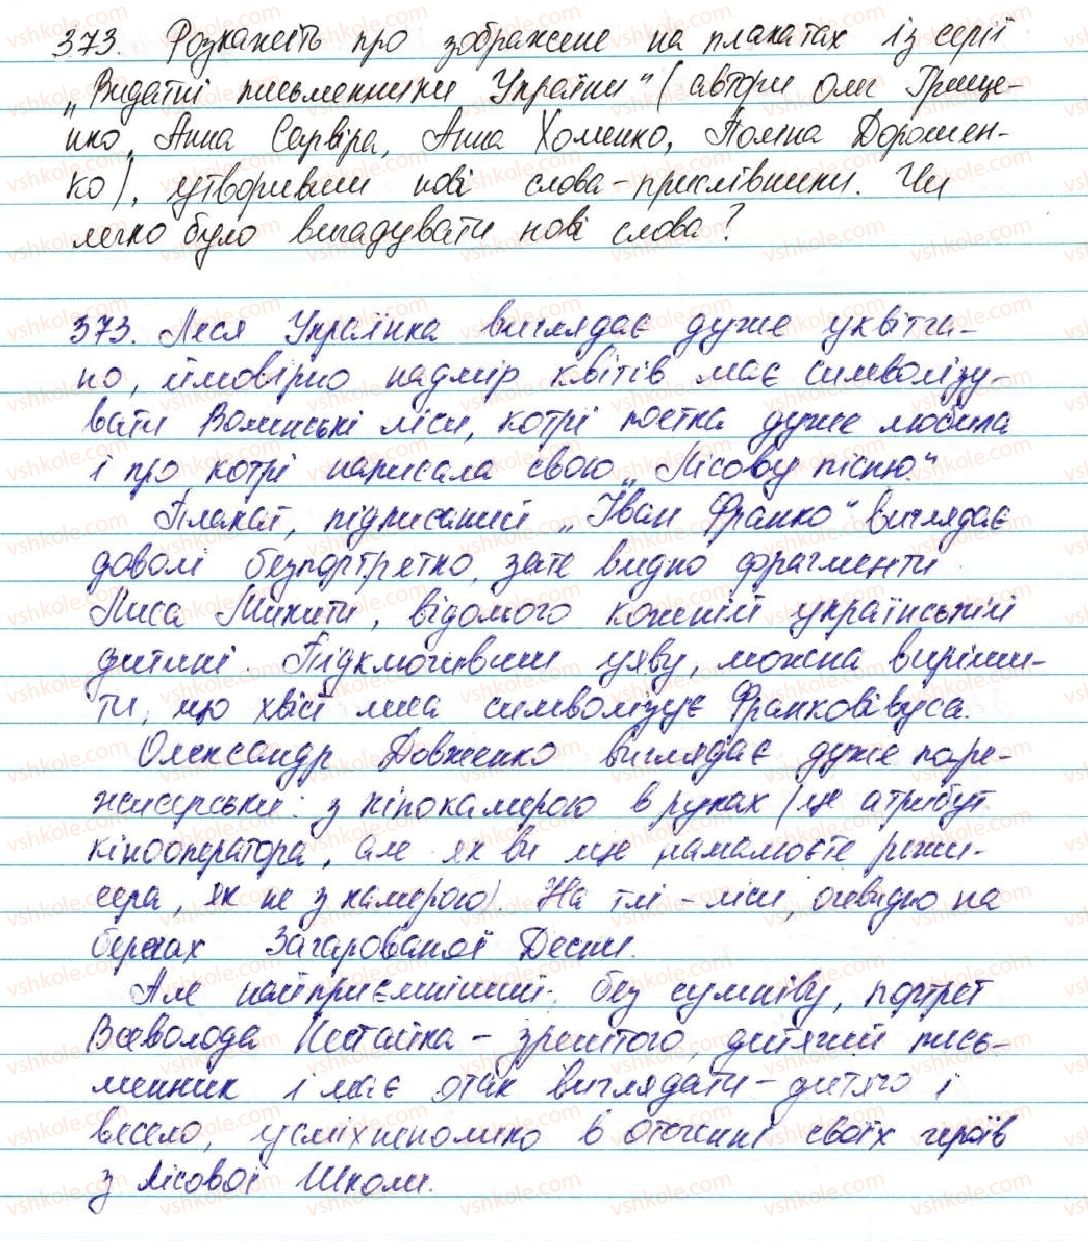 373. Розкажіть про зображене на плакатах із серії
„Видатні письменники України“ (автори Олег Грище-
нко, Анна Сарвіра, Анна Хоменко, Поліна Дорошен-
ко), утворивши нові слова-прислівники. Чи
легко було вигадувати нові слова?
373. Леся Українка виглядає дуже уквітча-
но, ймовірно надмір квітів має символізу-
вати Волинські ліси, котрі поетка дуже любила
і про котрі написала свою „Лісову пісню.“
Плакат, підписаний „Іван Франко“ виглядає
доволі безпортретно, зате видно фрагменти
Лиса Микити, відомого кожній українській
дитині. Підключивши уяву, можна виріши-
ти, що хвіст лиса символізує Франкові вуса.
Олександр Довженко виглядає дуже поре-
жисерськи: з кінокамерою в руках (це атрибут
кінооператора, але як ви ще намалюєте режи-
сера, як не з камерою). На тлі - ліси, очевидно на
берегах Зачарованої Десни.
Але найприємніший, без сумніву, портрет
Всеволода Нестайка - зрештою, дитячий пись-
менник і має отак виглядати - дитячо і
весело, усміхненолико в оточенні своїх героїв
з Лісової Школи.